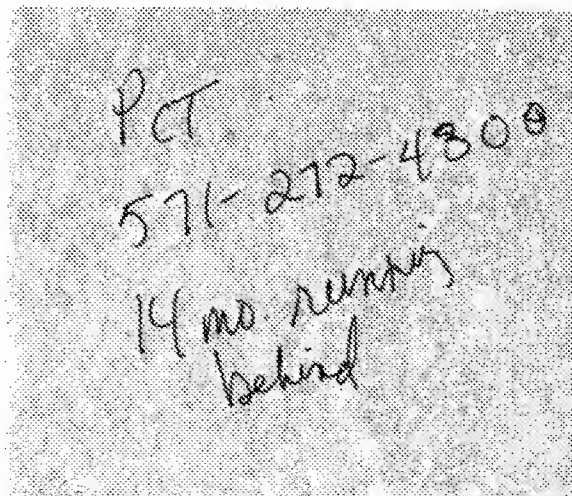 PCT
571-272-4300
14 mo. running
behind